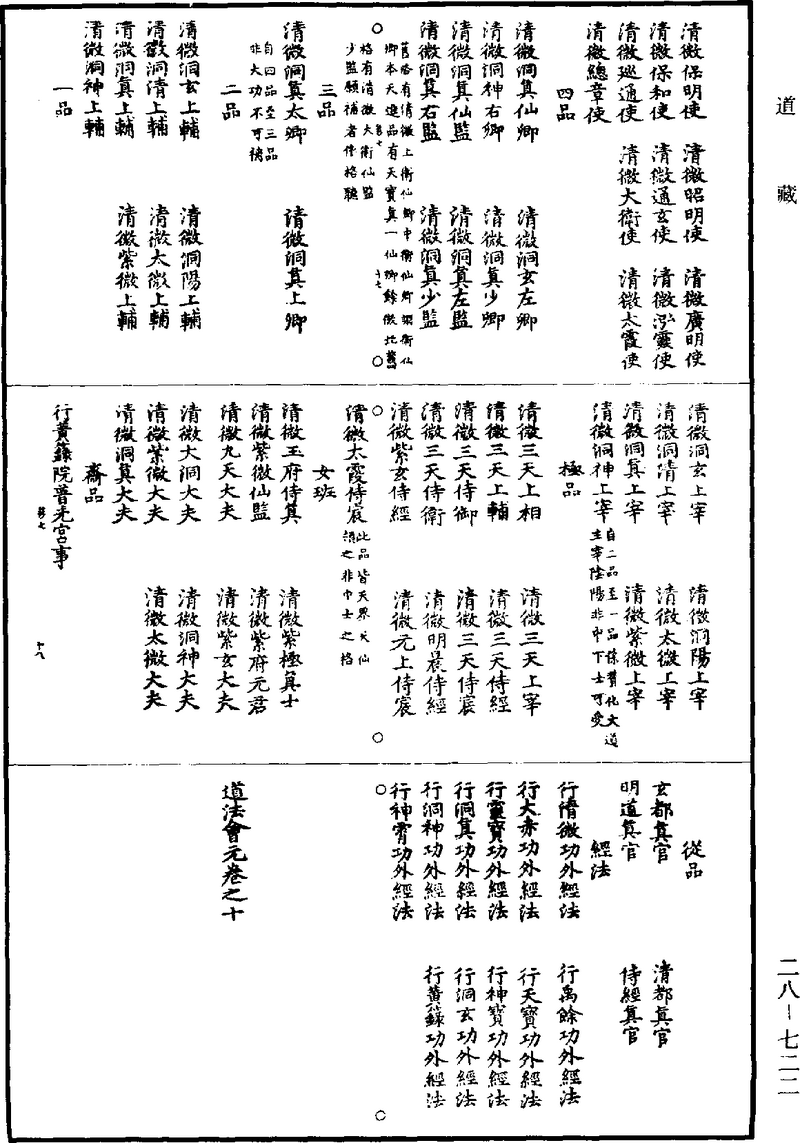 道藏
清微保明使 清微昭明使 清微廣明使
清微保和使 清微通玄使 清微泓靈使
清微巡通使 清微大衛使 清微太霞使
清微總章使
四品
清微洞真仙卿 清微洞玄左卿
清微洞神右卿 清微洞真少卿
清微洞真仙監 清微洞真左監
清微洞真右監 清微洞真少監
舊格有清微上衛仙卿中衛仙卿
卿本天進品有天寶真一仙卿餘倣此舊
格有清微大衛仙監
少監願補者作格聽
三品
清微洞真太卿 清微洞真上卿
自四品至三品
非大功不可授
二品
清微洞玄上輔 清微洞陽上輔
清微洞清上輔 清微太微上輔
清微洞真上輔 清微紫微上輔
清微洞神上輔
一品
清微洞玄上宰 清微洞陽上宰
清微洞清上宰 清微太微上宰
清微洞真上宰 清微紫微上宰
清微洞神上宰 自二品至一品係贊化大道
主宰陰陽非中下士可受
極品
清微三天上相 清微三天上宰
清微三天上輔 清微三天侍經
清微三天侍御 清微三天侍宸
清微三天侍衛 清微明晨侍經
清微紫玄侍經 清微元上侍宸
清微太霞侍宸 此品皆天界天仙
領之非中士之格
女班
清微玉府侍真 清微紫極真士
清微紫微仙監 清微紫府元君
清微九天大夫 清微紫玄大夫
清微大洞大夫 清微洞神大夫
清微紫微大夫 清微太微大夫
清微洞真大夫
齋品
行黃籙院普光宮事
十八
從品
玄都真官 清都真官
明道真官 侍經真官
經法
行清微功外經法 行禹餘功外經法
行大赤功外經法 行天寶功外經法
行靈寶功外經法 行神寶功外經法
行洞真功外經法 行洞玄功外經法
行洞神功外經法 行黃籙功外經法
行神霄功外經法
道法會元卷之十
二八-七二二